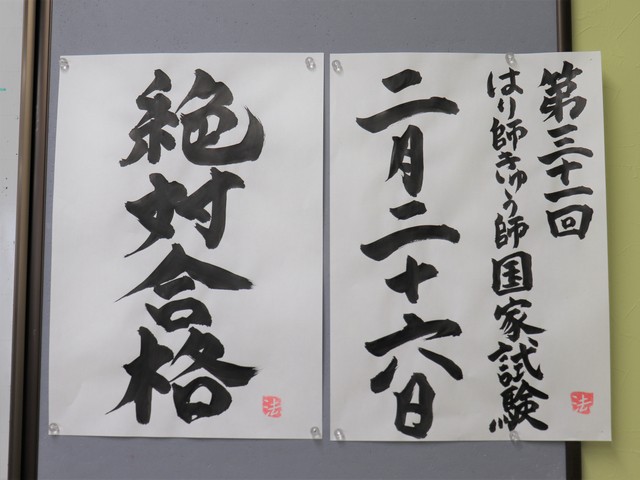 第三十一回
はり師きゅう師国家試験
二月二十六日
法
絶対合格
法